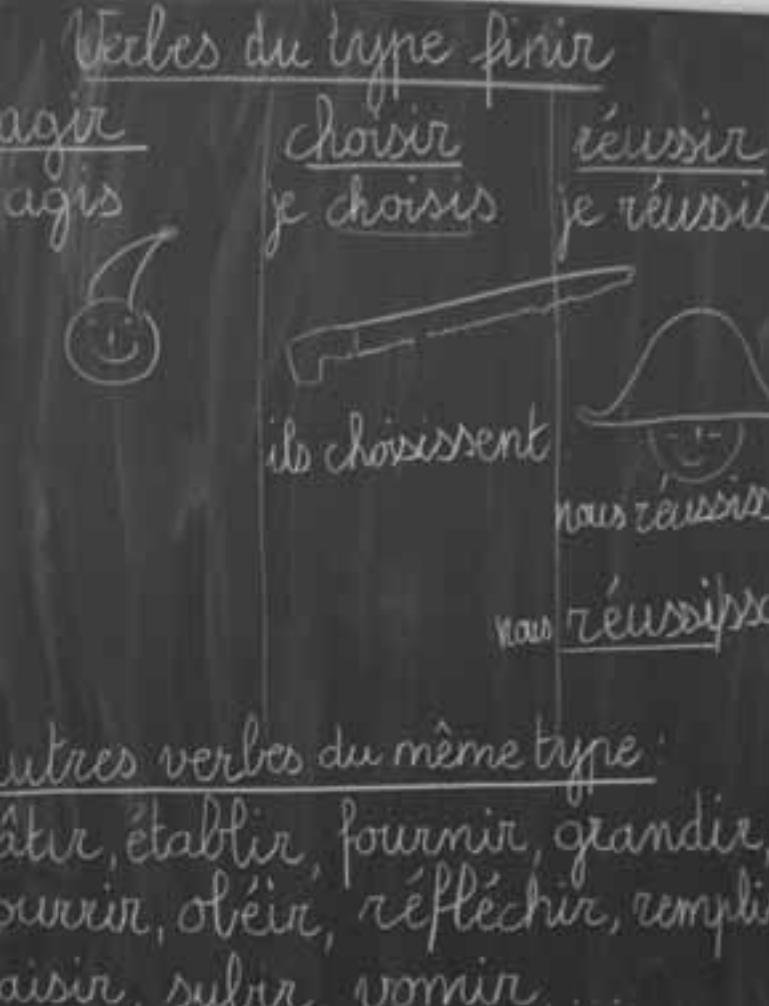 Verbes du type finir
agir choisir réussir
agis je choisis je réussis
ils choisissent
nous réussiss
nous réussisso
utres verbes du même type :
âtir, établir, fournir, grandir,
ourrir, obéir, réfléchir, rempli
aisir, subir, vomir, ...